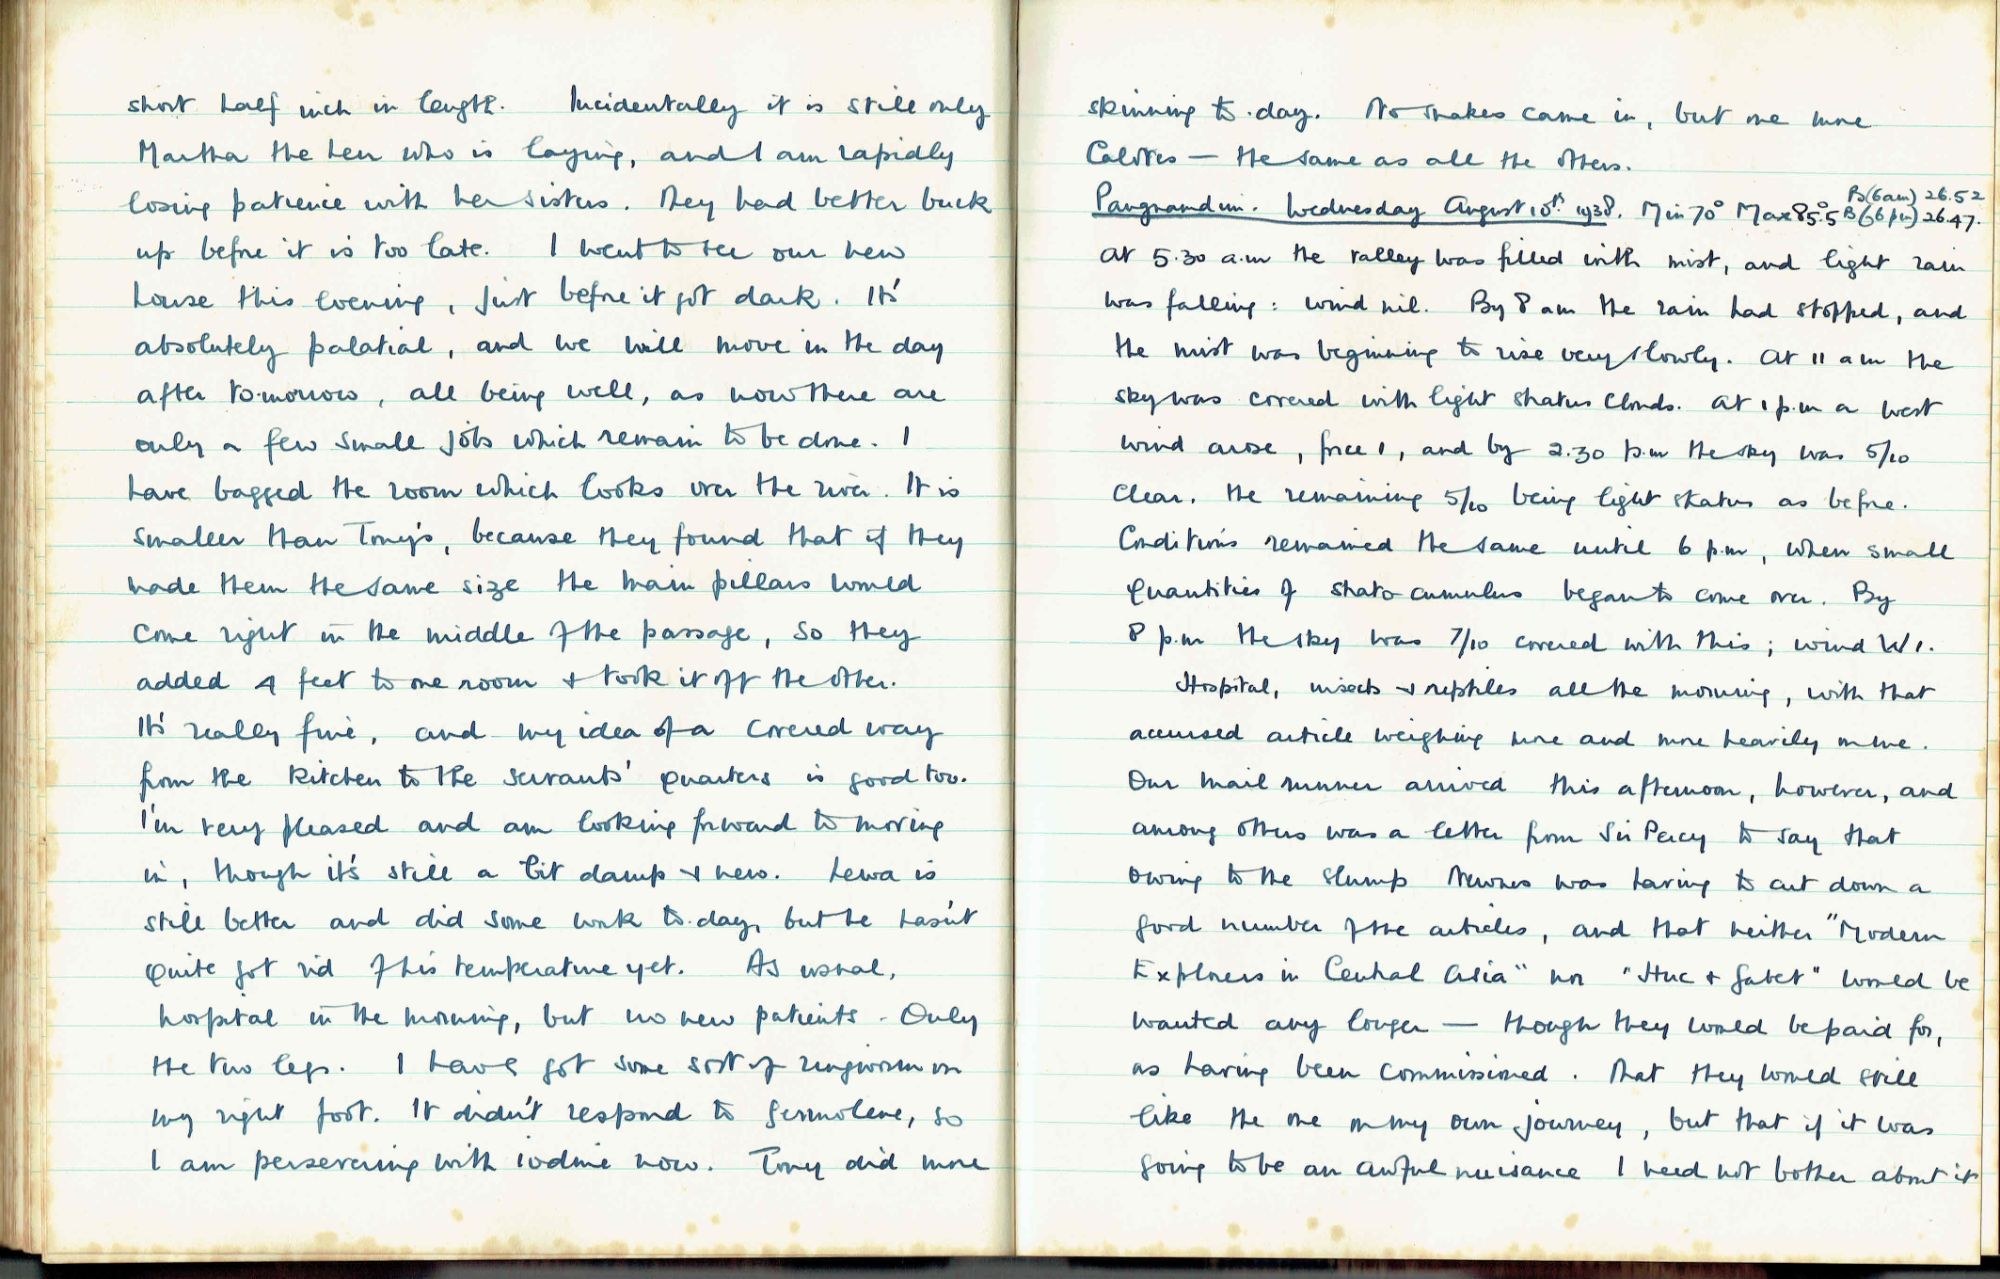 short half inch in length. Incidentally it is still only
Martha the hen who is laying, and I am rapidly
losing patience with her sisters. They had better buck
up before it is too late. I went to see our new
house this evening, just before it got dark. It's
absolutely palatial, and we will move in the day
after to-morrow, all being well, as now there are
only a few small jobs which remain to be done. I
have bagged the room which looks over the river. It is
smaller than Tony's, because they found that if they
made them the same size the main pillars would
come right in the middle of the passage, so they
added 4 feet to one room & took it off the other.
It's really fine, and my idea of a covered way
from the kitchen to the servants' quarters is good too.
I'm very pleased and am looking forward to moving
in, though it's still a bit damp & new. Lewa is
still better and did some work to-day, but he hasn't
quite got rid of his temperature yet. As usual,
hospital in the morning, but no new patients - Only
the two legs. I have got some sort of ringworm on
my right foot. It didn't respond to Germolene, so
I am persevering with iodine now. Tony did more
skinning to-day. No snakes came in, but one more
Calotes — the same as all the others.
Pangnamdim. Wednesday August 10th 1938. Min 70° Max 85.5° B(6am) 26.52 B(6pm) 26.47.
At 5.30 a.m the valley was filled with mist, and light rain
was falling: wind nil. By 8 am the rain had stopped, and
the mist was beginning to rise very slowly. At 11 am the
sky was covered with light stratus clouds. At 1 p.m a west
wind arose, force 1, and by 2.30 p.m the sky was 5/10
clear, the remaining 5/10 being light stratus as before.
Conditions remained the same until 6 p.m, when small
quantities of strato-cumulus began to come over. By
8 p.m the sky was 7/10 covered with this; wind W1.
Hospital, insects & reptiles all the morning, with that
accursed article weighing more and more heavily on me.
Our mail runner arrived this afternoon, however, and
among others was a letter from Sir Percy to say that
owing to the slump Newnes was having to cut down a
good number of the articles, and that neither "Modern
Explorers in Central Asia" nor "Huc & Gabet" would be
wanted any longer — though they would be paid for,
as having been commissioned. That they would still
like the one on my own journey, but that if it was
going to be an awful nuisance I need not bother about it